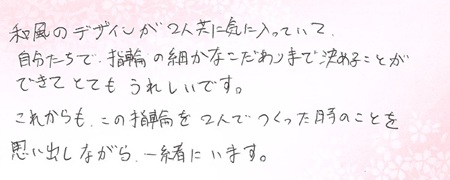 和風のデザインが2人共に気に入っていて、
自分たちで、指輪の細かなこだわりまで決めることが
できてとてもうれしいです。
これからも、この指輪を2人でつくった時のことを
思い出しながら、一緒にいます。